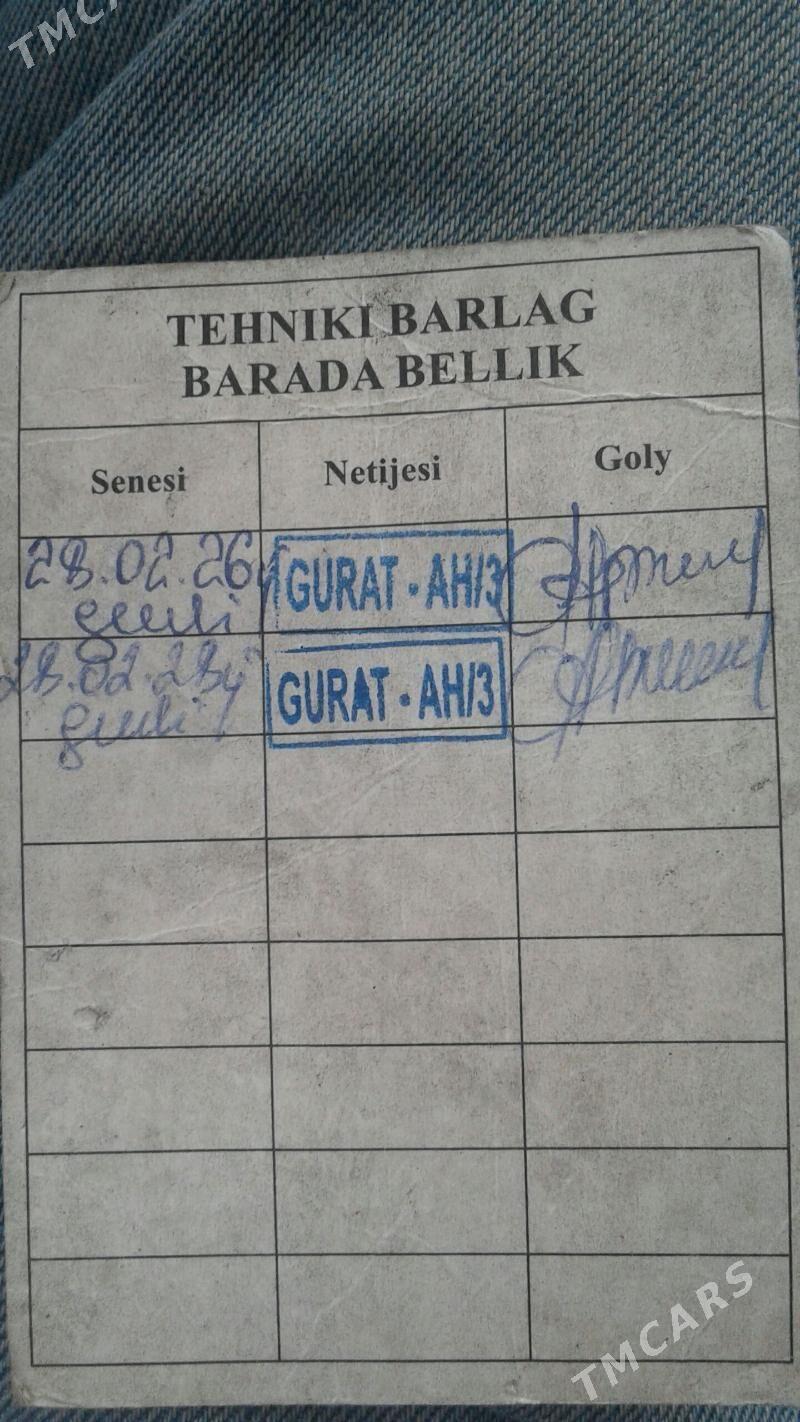 TMCA
TEHNIKI BARLAG
BARADA BELLIK
Senesi Netijesi Goly
28.02.26 GURAT - AH/3
28.02.28ý GURAT - AH/3
TMCARS